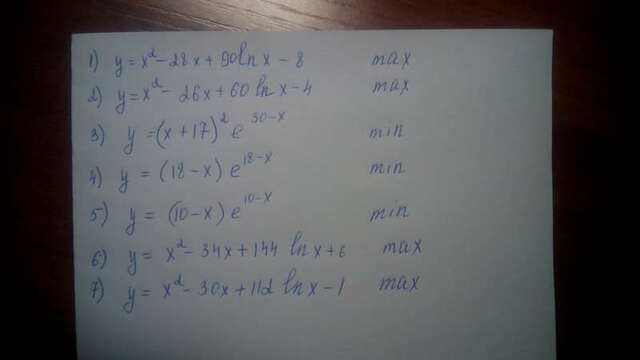 1) y = x² - 28x + 90 ln x - 8 max
2) y = x² - 26x + 60 ln x - 4 max
3) y = (x + 17)² e^30-x min
4) y = (18 - x) e^18-x min
5) y = (10 - x) e^10-x min
6) y = x² - 34x + 144 ln x + 6 max
7) y = x² - 30x + 112 ln x - 1 max